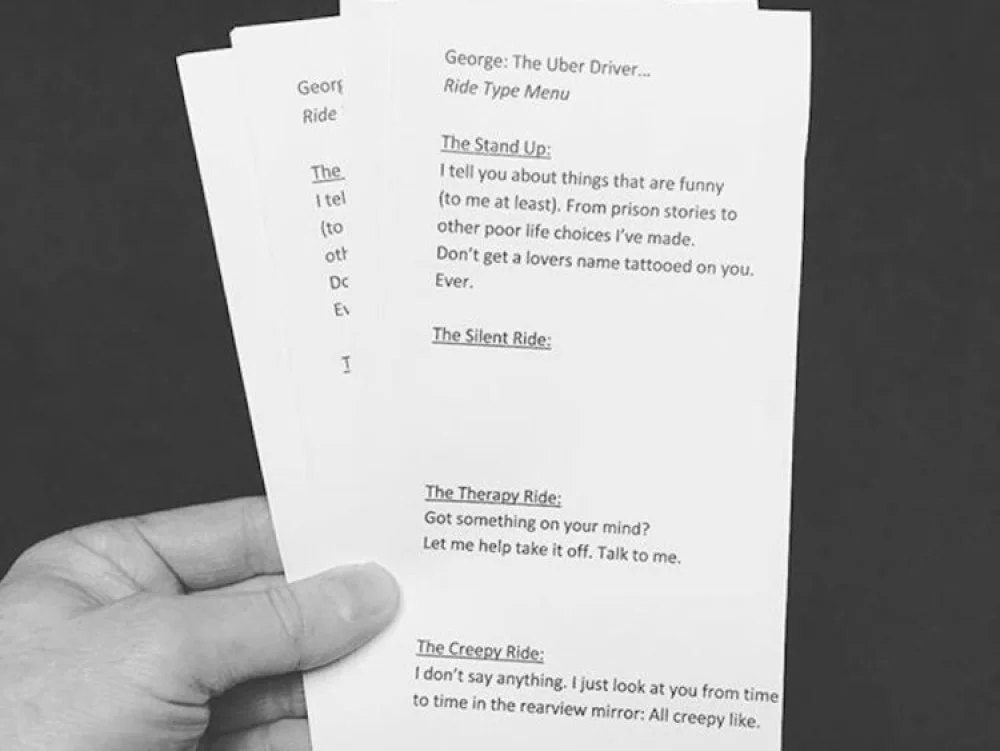 George: The Uber Driver...
Ride Type Menu
The Stand Up:
I tell you about things that are funny
(to me at least). From prison stories to
other poor life choices I've made.
Don't get a lovers name tattooed on you.
Ever.
The Silent Ride:
The Therapy Ride:
Got something on your mind?
Let me help take it off. Talk to me.
The Creepy Ride:
I don't say anything. I just look at you from time
to time in the rearview mirror: All creepy like.
Georg
Ride
The
I tel
(to
oth
Do
Ev
T